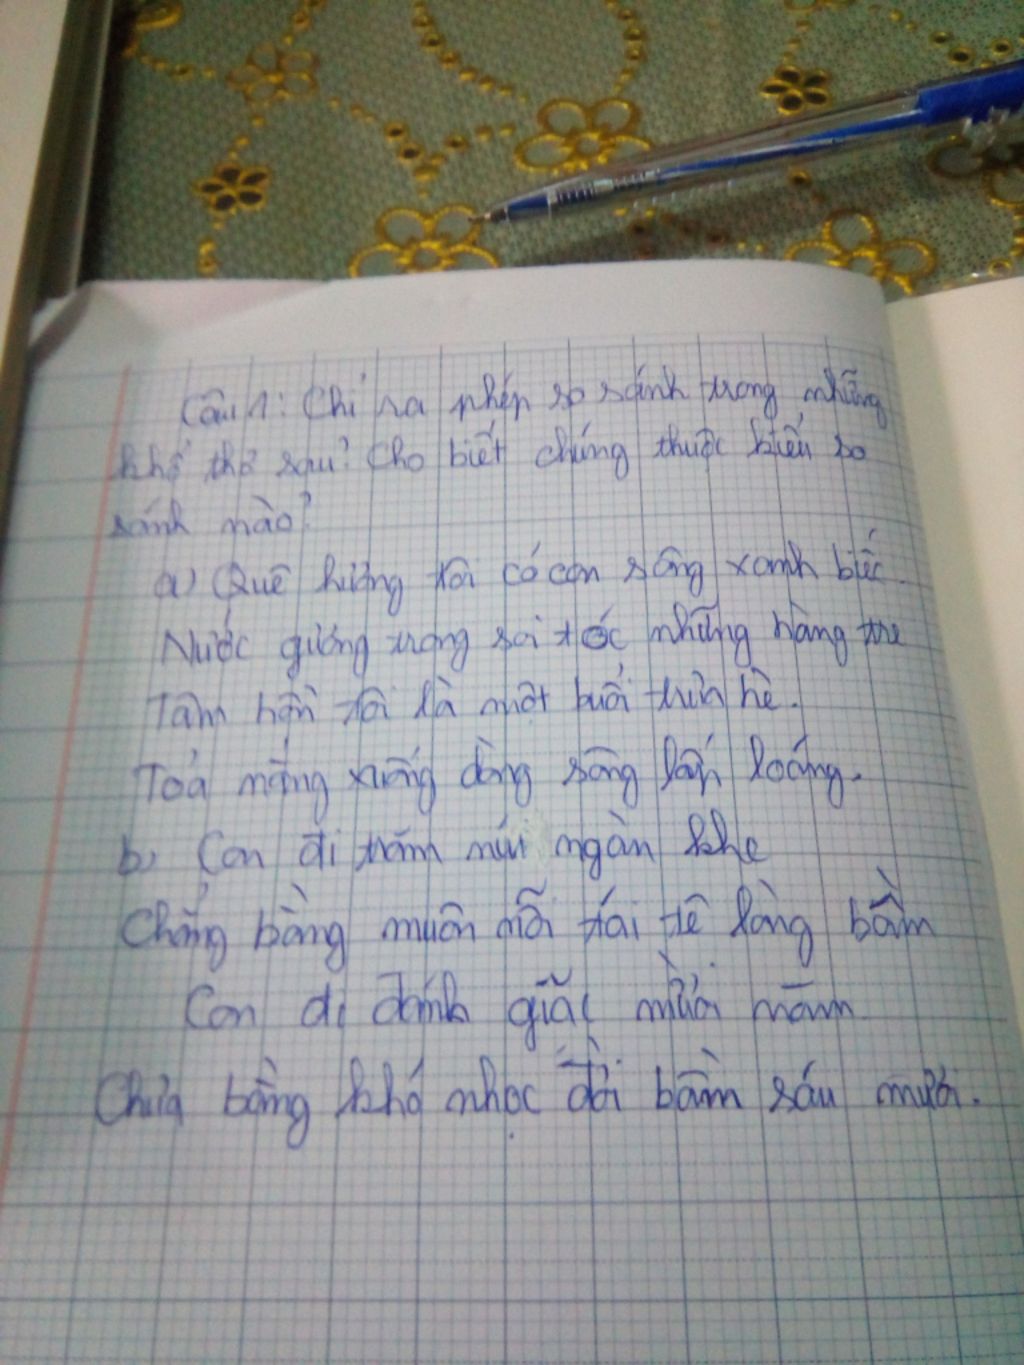 Câu 1: Chỉ ra phép so sánh trong những
khổ thơ sau? Cho biết chúng thuộc kiểu so
sánh nào?
a) Quê hương tôi có con sông xanh biếc.
Nước gương trong soi tóc những hàng tre
Tâm hồn tôi là một buổi trưa hè.
Toả nắng xuống dòng sông lấp loáng.
b) Con đi trăm núi ngàn khe
Chẳng bằng muôn nỗi tái tê lòng bầm
Con đi đánh giặc mười năm
Chưa bằng khó nhọc đời bầm sáu mươi.